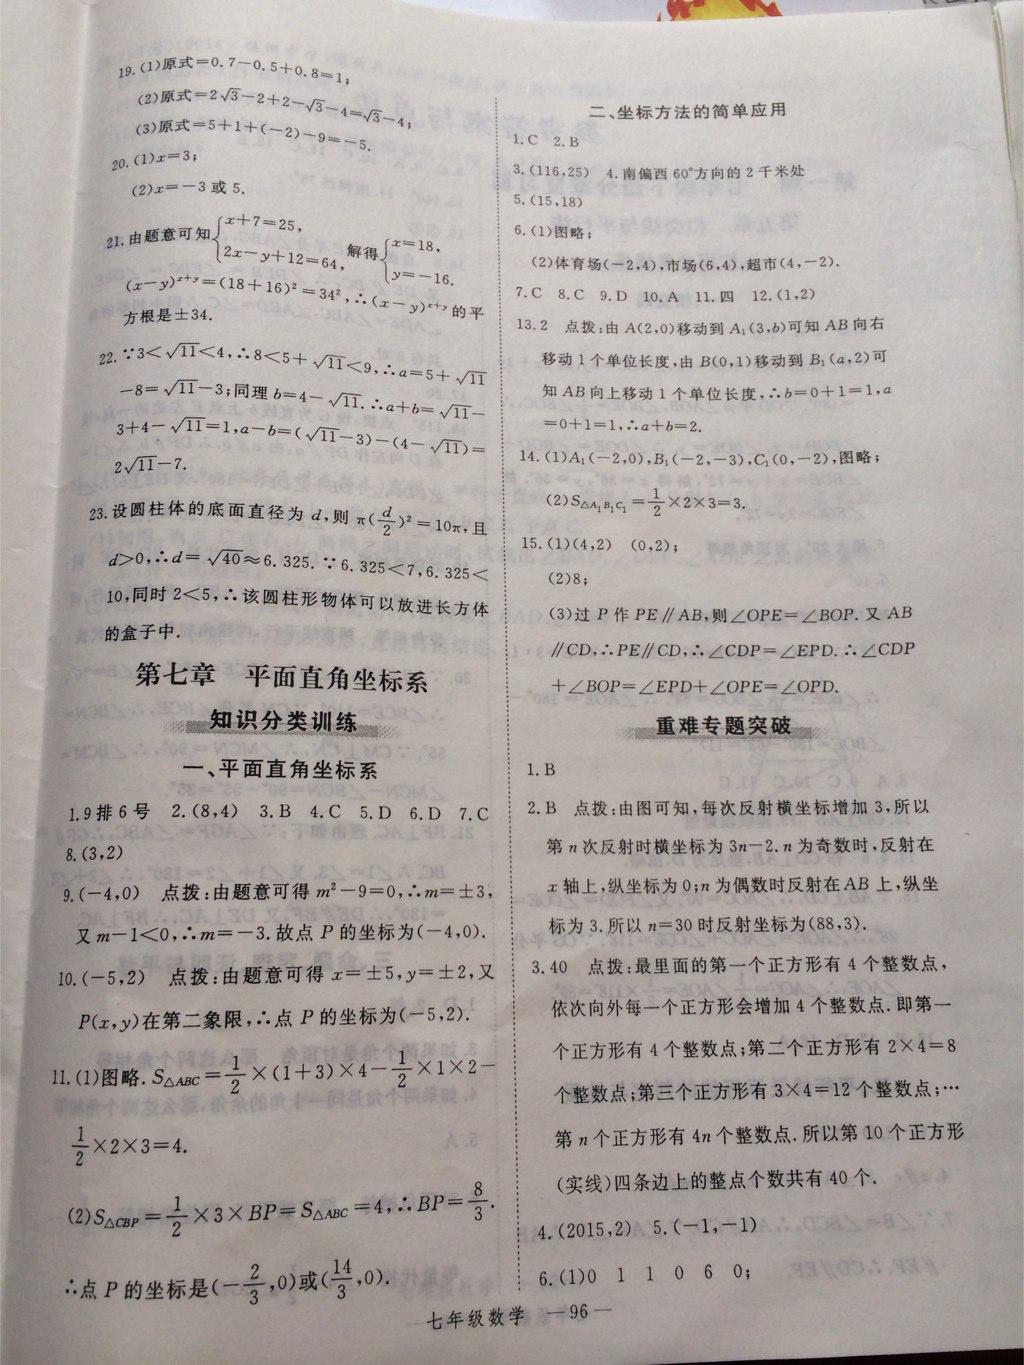 19.(1)原式=0.7-0.5+0.8=1;
(2)原式=2√3-2+2-√3-4=√3-4;
(3)原式=5+1+(-2)-9=-5.
20.(1)x=3;
(2)x=-3或5.
21.由题意可知{x+7=25, 2x-y+12=64, 解得{x=18, y=-16.
(x-y)^{x+y}=(18+16)²=34²,∴(x-y)^{x+y}的平
方根是±34.
22.∵3<√11<4,∴8<5+√11<9,∴a=5+√11
-8=√11-3;同理b=4-√11.∴a+b=√11-
3+4-√11=1,a-b=(√11-3)-(4-√11)=
2√11-7.
23.设圆柱体的底面直径为d,则π(d/2)²=10π,且
d>0,∴d=√40≈6.325.∵6.325<7,6.325<
10,同时2<5,∴该圆柱形物体可以放进长方体
的盒子中.
第七章 平面直角坐标系
知识分类训练
一、平面直角坐标系
1.9排6号 2.(8,4) 3.B 4.C 5.D 6.D 7.C
8.(3,2)
9.(-4,0) 点拨:由题意可得m²-9=0,∴m=±3,
又m-1<0,∴m=-3.故点P的坐标为(-4,0).
10.(-5,2) 点拨:由题意可得x=±5,y=±2,又
P(x,y)在第二象限,∴点P的坐标为(-5,2).
11.(1)图略.S△ABC=1/2×(1+3)×4-1/2×1×2-
1/2×2×3=4.
(2)S△CBP=1/2×3×BP=S△ABC=4,∴BP=8/3.
∴点P的坐标是(-2/3,0)或(14/3,0).
二、坐标方法的简单应用
1.C 2.B
3.(116,25) 4.南偏西60°方向的2千米处
5.(15,18)
6.(1)图略;
(2)体育场(-2,4),市场(6,4),超市(4,-2).
7.C 8.C 9.D 10.A 11.四 12.(1,2)
13.2 点拨:由A(2,0)移动到A₁(3,b)可知AB向右
移动1个单位长度,由B(0,1)移动到B₁(a,2)可
知AB向上移动1个单位长度,∴b=0+1=1,a
=0+1=1,∴a+b=2.
14.(1)A₁(-2,0),B₁(-2,-3),C₁(0,-2),图略;
(2)S△A₁B₁C₁=1/2×2×3=3.
15.(1)(4,2) (0,2);
(2)8;
(3)过P作PE∥AB,则∠OPE=∠BOP.又AB
∥CD,∴PE∥CD,∴∠CDP=∠EPD.∴∠CDP
+∠BOP=∠EPD+∠OPE=∠OPD.
重难专题突破
1.B
2.B 点拨:由图可知,每次反射横坐标增加3,所以
第n次反射时横坐标为3n-2.n为奇数时,反射在
x轴上,纵坐标为0;n为偶数时反射在AB上,纵坐
标为3.所以n=30时反射坐标为(88,3).
3.40 点拨:最里面的第一个正方形有4个整数点,
依次向外每一个正方形会增加4个整数点.即第一
个正方形有4个整数点;第二个正方形有2×4=8
个整数点;第三个正方形有3×4=12个整数点;…
第n个正方形有4n个整数点.所以第10个正方形
(实线)四条边上的整点个数共有40个.
4.(2015,2) 5.(-1,-1)
6.(1)0 1 1 0 6 0;
七年级数学 —96—